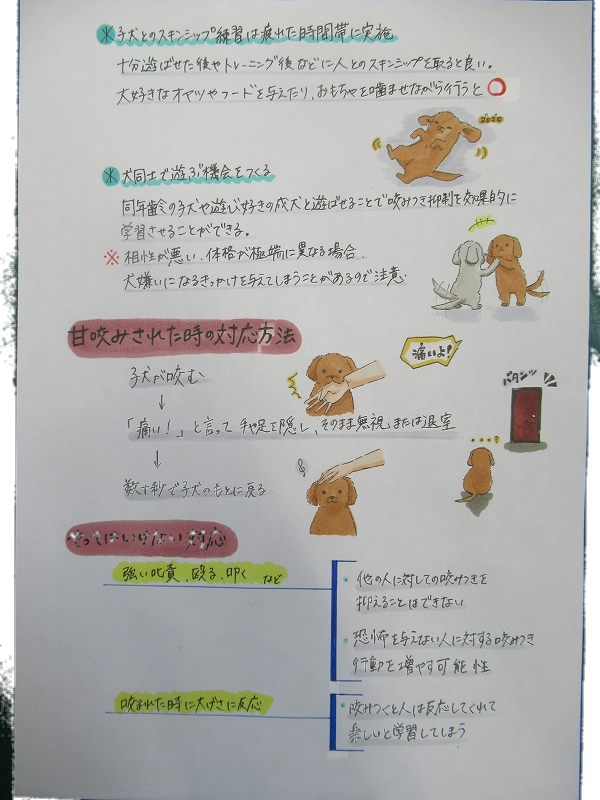 * 子犬とのスキンシップ練習は疲れた時間帯に実施
十分遊ばせた後やトレーニング後などに人とのスキンシップを取ると良い。
大好きなオヤツやフードを与えたり、おもちゃを噛ませながら行うと○
ゴロゴロ
* 犬同士で遊ぶ機会をつくる
同年齢の子犬や遊び好きの成犬と遊ばせることで咬みつき抑制を効果的に
学習させることができる。
※ 相性が悪い、体格が極端に異なる場合、
犬嫌いになるきっかけを与えてしまうことがあるので注意
甘咬みされた時の対応方法
子犬が咬む
痛いよ!
↓
バタンッ
「痛い!」と言って手や足を隠し、そのまま無視または退室
・・・?
↓
数十秒で子犬のもとに戻る
やってはいけない対応
強い叱責、殴る、叩く など
・他の人に対しての咬みつきを
抑えることはできない
・恐怖を与えない人に対する咬みつき
行動を増やす可能性
咬まれた時に大げさに反応
・咬みつくと人は反応してくれて
楽しいと学習してしまう